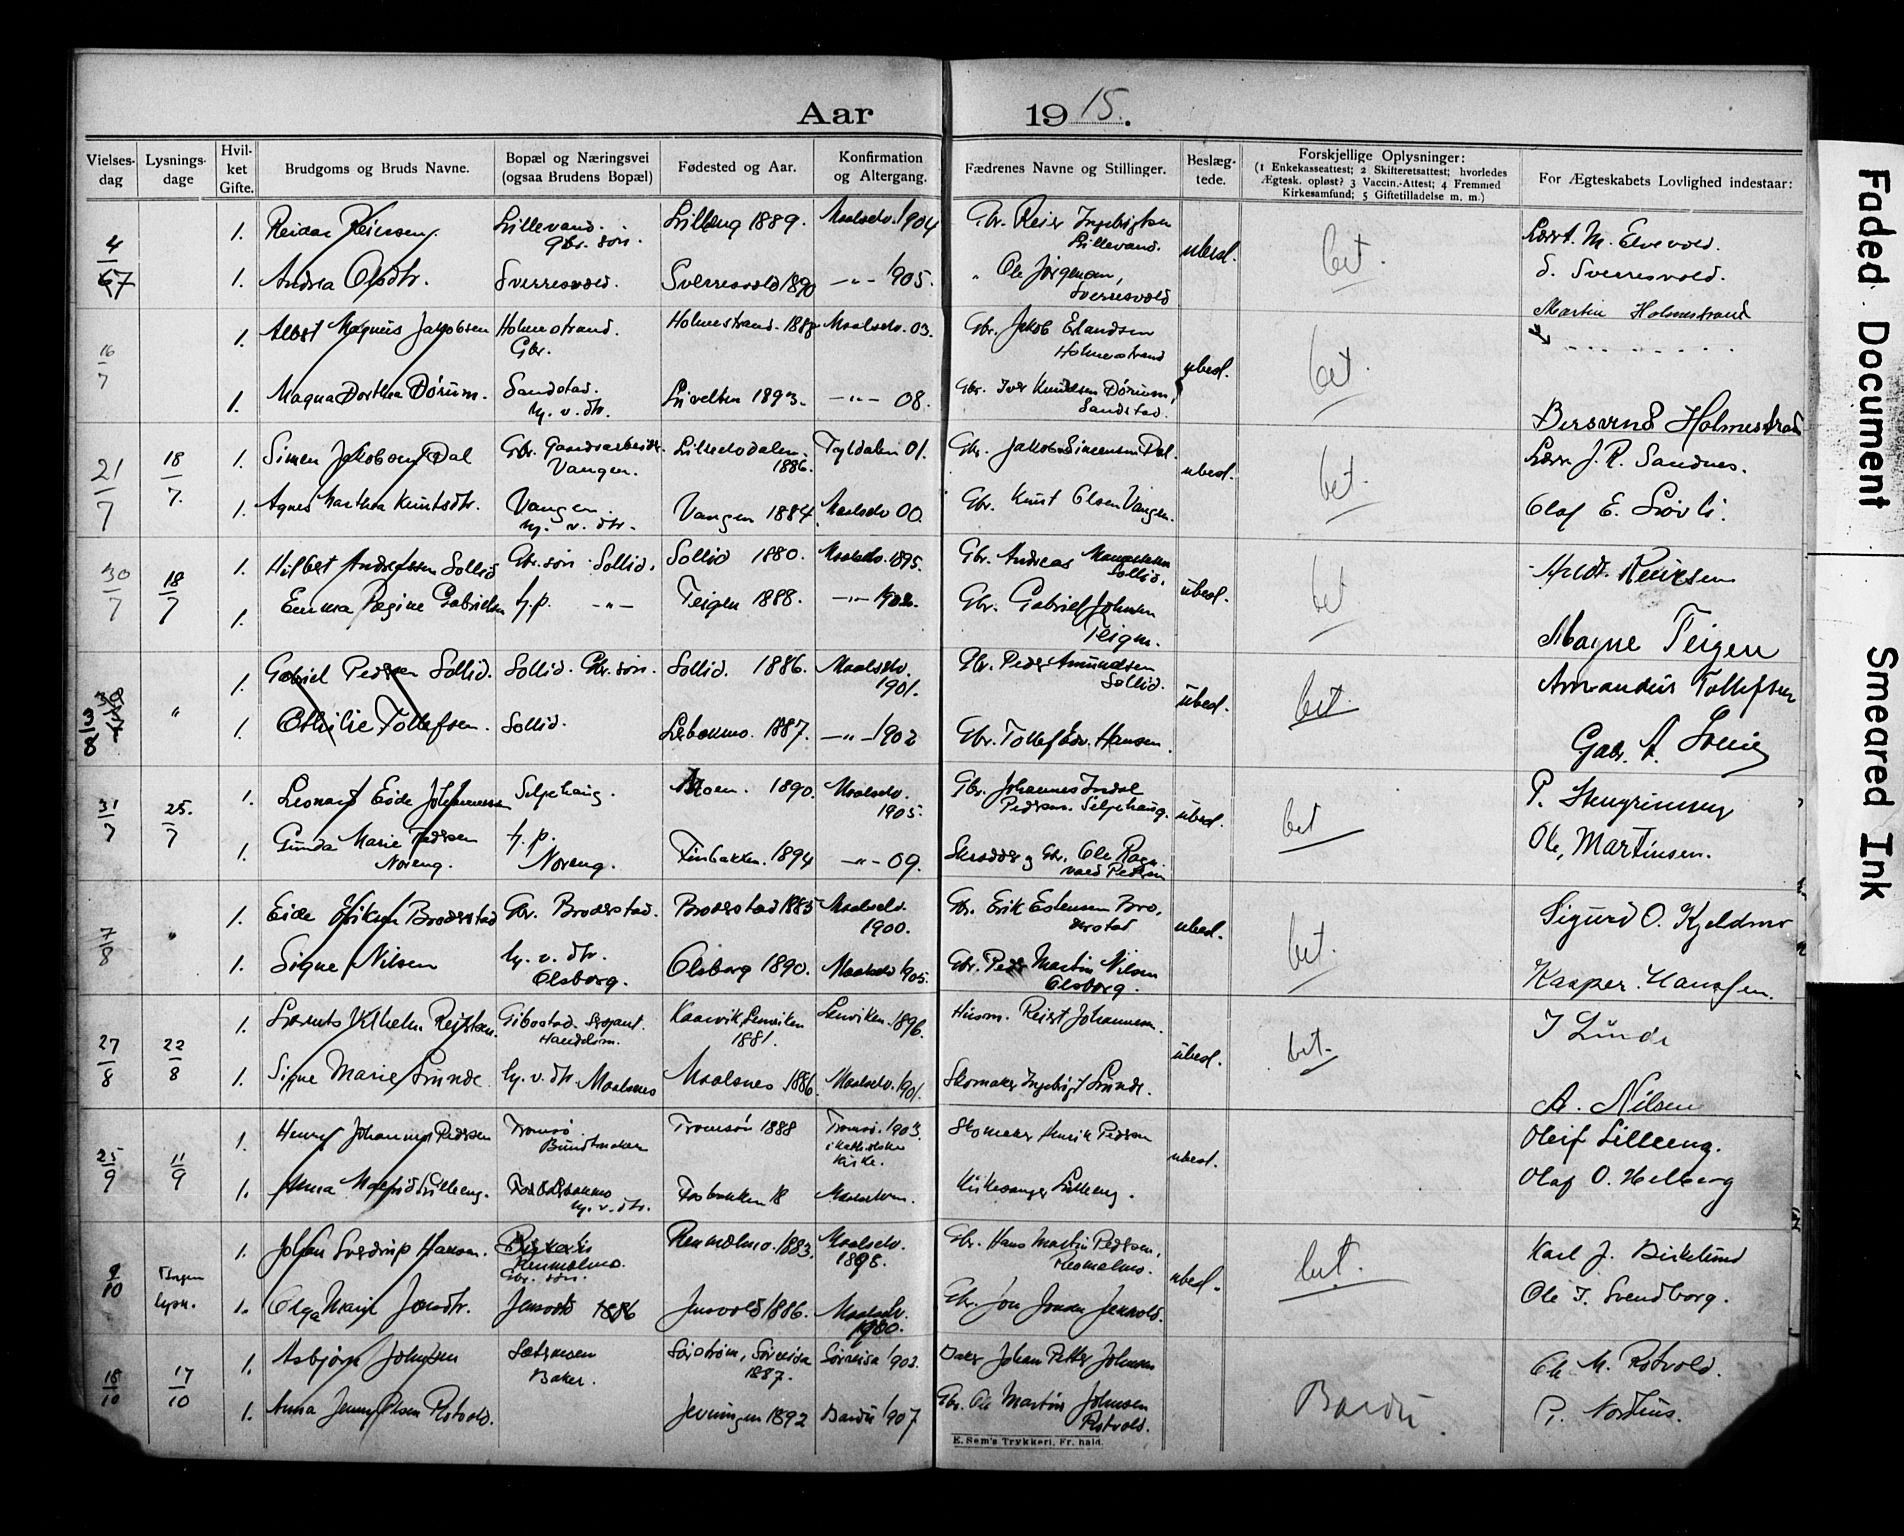 Aar 1915.
Vielses-dag
Lysnings-dage
Hvil-ket Gifte.
Brudgoms og Bruds Navne.
Bopæl og Næringsvei (ogsaa Brudens Bopæl)
Fødested og Aar.
Konfirmation og Altergang.
Fædrenes Navne og Stillinger.
Beslæg-tede.
Forskjellige Oplysninger:
(1 Enkekasseattest; 2 Skifteretsattest; hvorledes
Ægtesk. opløst? 3 Vaccin.-Attest; 4 Fremmed
Kirkesamfund; 5 Giftetilladelse m. m.)
For Ægteskabets Lovlighed indestaar:
4/7 1. Reidar Reiersen. Lillevand. Gbr. søn. Lilleng 1889. Maalselv. 1904 Gbr. Reier Ingebrigtsen Lillevand. ubesl. bet. M. Elvevold.
1. Andrea Olsdtr. Sverresvold. Sverresvold 1890 —"— 1905. " Ole Jørgensen, Sverresvold S. Sverresvold.
16/7 1. Albert Magnus Jakobsen Holmestrand. Gbr. Holmestrand. 1888 Maalselv. 03. Gbr. Jakob Erlandsen Holmestrand ubesl. bet. Martin Holmestrand
1. Magna Dorthea Dørum. Sandstad. hj. v. dtr. 1893. —"— 08. Gbr. Iver Knudsen Dørum, Sandstad. Bersvend Holmestrand
21/7 18/7. 1. Simen Jakobsen Dal Gbr. Vangen. Lilleelvdalen. 1886. Tyldalen 01. Gbr. Jakob Simensen Dal. ubesl. bet. J. R. Sandnes.
1. Agnes Marthea Knutsdtr. Vangen. hj. v. dtr. Vangen 1884. Maalselv 00. Gbr. Knut Olsen Vangen. Olaf E. Løvli.
30/7 18/7 1. Hilbert Andreassen Sollid Gbr. søn Sollid. Sollid 1880. Maalselv. 1895. Gbr. Andreas Sollid. ubesl. bet Arldt. Reiersen
1. Emma Regine Gabrielsen hj. —"— Teigen 1888. —"— 1902. Gbr. Gabriel Johnsen Teigen. Magne Teigen
" 1. Gabriel Pedersen Sollid. Sollid. Gbr. søn. Sollid. 1886. Maalselv. 1901. Gbr. Peder Amundsen Sollid. ubesl. bet. Amandus Tollefsen
1. Othilie Tollefsen. Sollid. 1887. —"— 1902 Gbr. Tollef Edv. Hansen. Gabr. A.
31/7 25./7 1. Leonard Eide Johannessen Seljehaug. Moen. 1890. Maalselv. 1905. Gbr. Johannes Indal Pedersen. Seljehaug. ubesl. bet P.
1. Gunda Marie Pedersen Noreng. hj. p. Noreng. Finbakken. 1894 —"— 09. Skredder og Gbr. Ole Ragnvald Pedersen Ole, Martinsen.
7/8 " 1. Eide Eriksen Broderstad Gbr. Broderstad. Broderstad 1885 Maalselv. 1900. Gbr. Erik Estensen Broderstad ubesl. bet. Sigurd O. Kjeldmo
1. Signe Nilsen hj. v. dtr. Olsborg. Olsborg 1890. Maalselv 1905. Gbr. Peder Martin Nilsen Olsborg. Kasper. Hanssen.
27/8 22/8 1. Lornts Vilhelm Reiertsen Gibostad. Sersjant. Kaarvik, Lenviken 1881. Lenviken. 1896. Husm. Reiert Johannessen. ubesl. bet. I Lunde
1. Signe Marie Lunde hj. v. dtr. Maalsnes Maalsnes 1886. Maalselv. 1901. Skomaker Ingebrigt Lunde. A. Nilsen
25/9 11/9 1. Henry Johannes Pedersen Tromsø. Bundtmaker Tromsø 1888 Tromsø. 1903. i katholske kirke. Skomaker Henrik Pedersen ubesl. Oleif Lilleeng.
1. Anna Lilleeng. hj. v. dtr. Fosbakken 18 Maalselven. Kirkesanger Lilleeng. Olaf O. Helberg
9/10 Ingen lysn. 1. Johan Sverdrup Hansen. Renmælmo. Gbr. søn. Renmælmo. 1883. Maalselv. 1898. Gbr. Hans Martin Pedersen, Renmælmo. ubesl. bet. Karl J. Birkelund
1. Olga Marie Jonsdtr. Jensvold 1886 Jensvold 1886. Maalselv. 1900. Gbr. Jon Jonsen Jensvold. Ole J. Svendborg.
18/10 17/10 1. Asbjørn Johnsen Sætermoen Baker. Sørstrøm, Sørreisa 1887. Sørreisa 1902. Johan Petter Johnsen Bardu. Ole M. Rotvold.
1. Anna Jenny Olsen Rotvold. 1892 Bardu 1907 Gbr. Ole Martin Johnsen Rotvold. P. Nordhus.
E. Sem's Trykkeri, Fr.hald.
Faded Document
Smeared Ink